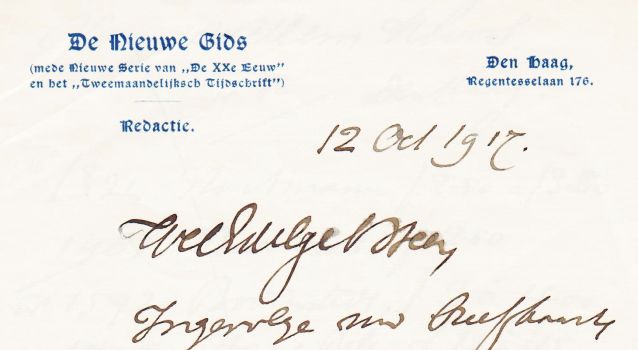 De Nieuwe Gids
(mede Nieuwe Serie van „De XXe Eeuw"
en het „Tweemaandelijksch Tijdschrift")
Redactie.
Den Haag,
Regentesselaan 176.
12 Oct 1917.
WelEdelgeb Heer,
Ingevolge uw Briefkaart